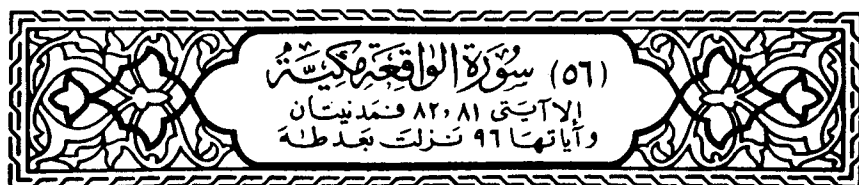 (٥٦) سُورَةُ الوَاقِعَةِ مَكِيَّةٌ
إلا آيتى ٨١، ٨٢ فمدنيتان
وآياتها ٩٦ نزلت بعد طه